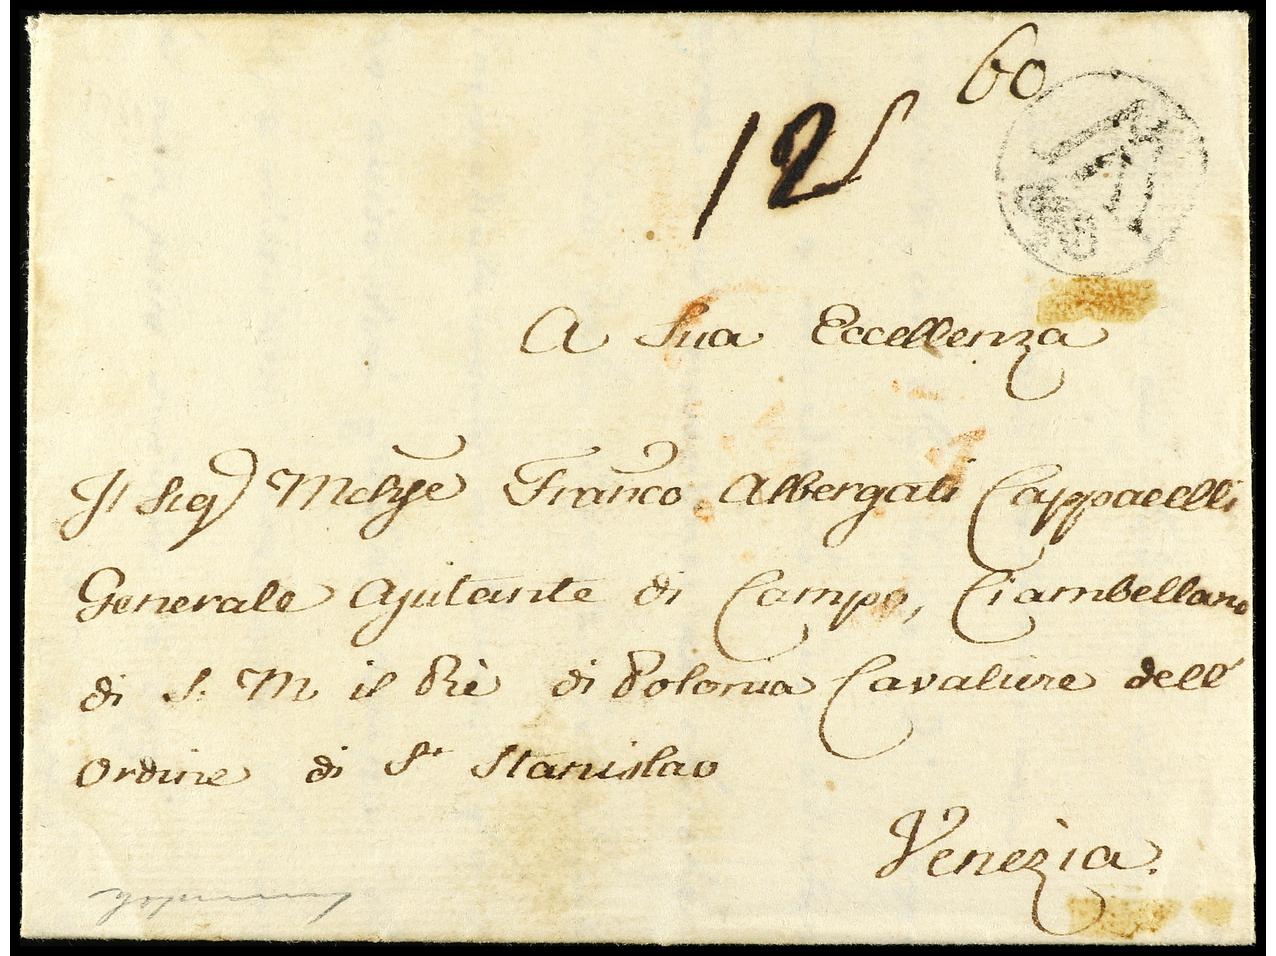 60
12
A Sua Eccellenza
Il Sig.r Mchse Franco Albergati Cappacelli
Generale Ajutante di Campo, Ciambellano
di S. M il Rè di Polonia Cavaliere dell'
Ordine di S.r Stanislao
Venezia.